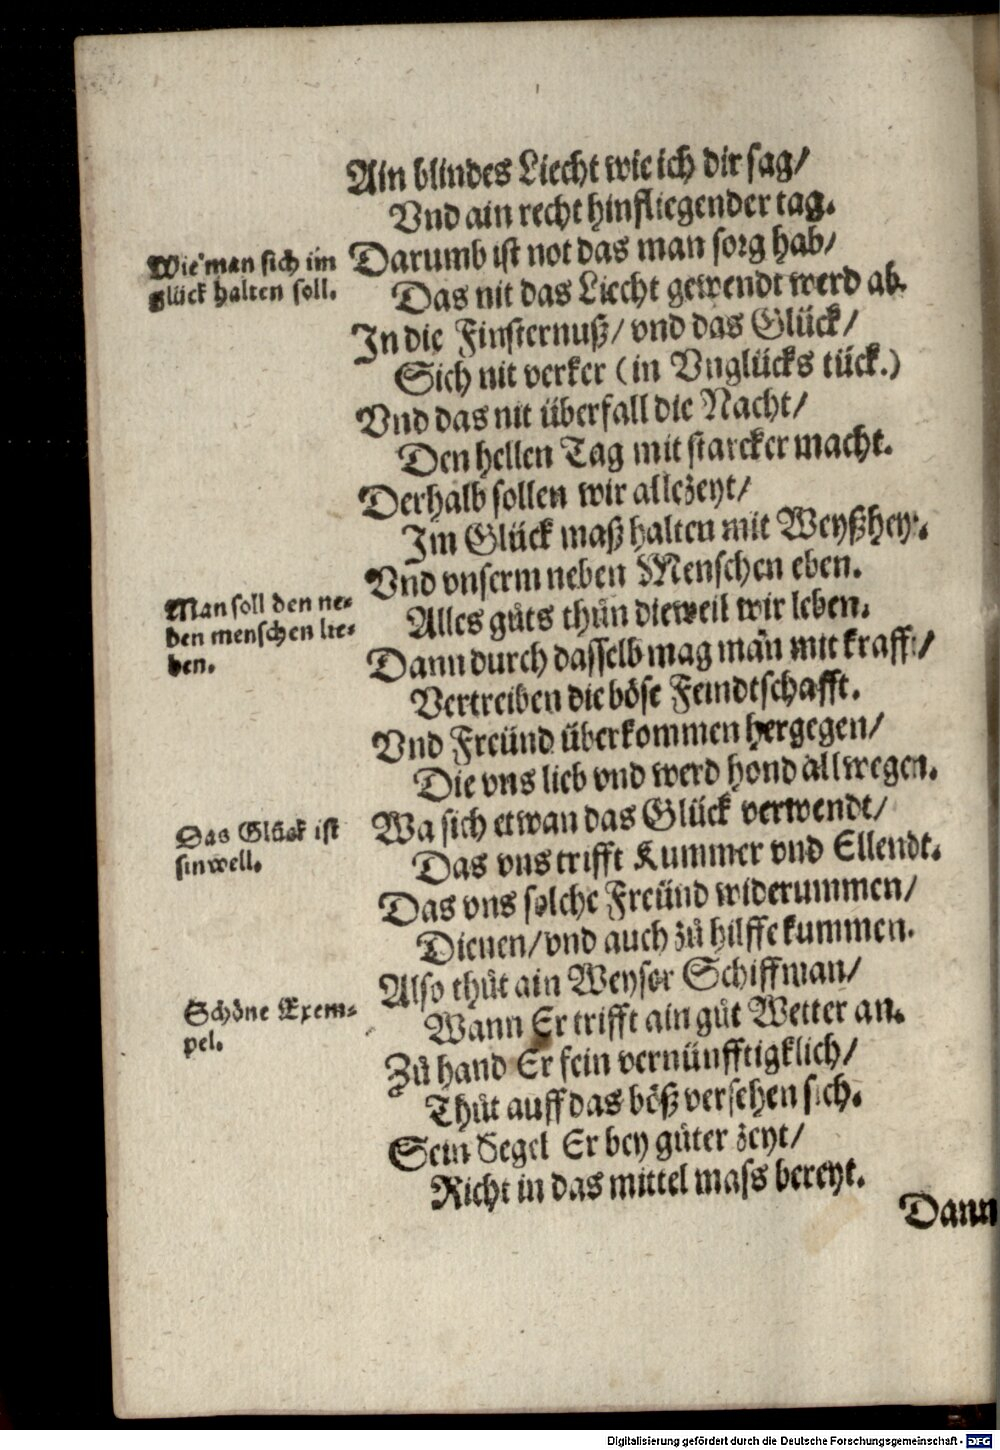 Ain blindes Liecht wie ich dir sag/
Vnd ain recht hinfliegender tag.
Wie man sich im
glück halten soll.
Darumb ist not das man sorg hab/
Das nit das Liecht gewendt werd ab.
In die Finsternuß/ vnd das Glück/
Sich nit verker (in Vnglücks tück.)
Vnd das nit überfall die Nacht/
Den hellen Tag mit starcker macht.
Derhalb sollen wir allezeyt/
Im Glück maß halten mit Weyßheyt.
Vnd vnserm neben Menschen eben.
Man soll den ne-
ben menschen lie-
ben.
Alles gůts thůn dieweil wir leben.
Dann durch dasselb mag man mit krafft/
Vertreiben die böse Feindtschafft.
Vnd Freünd überkommen hergegen/
Die vns lieb vnd werd hond allwegen.
Das Glück ist
sinwell.
Wa sich etwan das Glück verwendt/
Das vns trifft Kummer vnd Ellendt.
Das vns solche Freünd widerummen/
Dienen/ vnd auch zů hilffe kummen.
Schöne Exem-
pel.
Also thůt ain Weyser Schiffman/
Wann Er trifft ain gůt Wetter an.
Zů hand Er fein vernünfftigklich/
Thůt auff das böß versehen sich.
Sein Segel Er bey gůter zeyt/
Richt in das mittel mass bereyt.
Dann
Digitalisierung gefördert durch die Deutsche Forschungsgemeinschaft - DFG